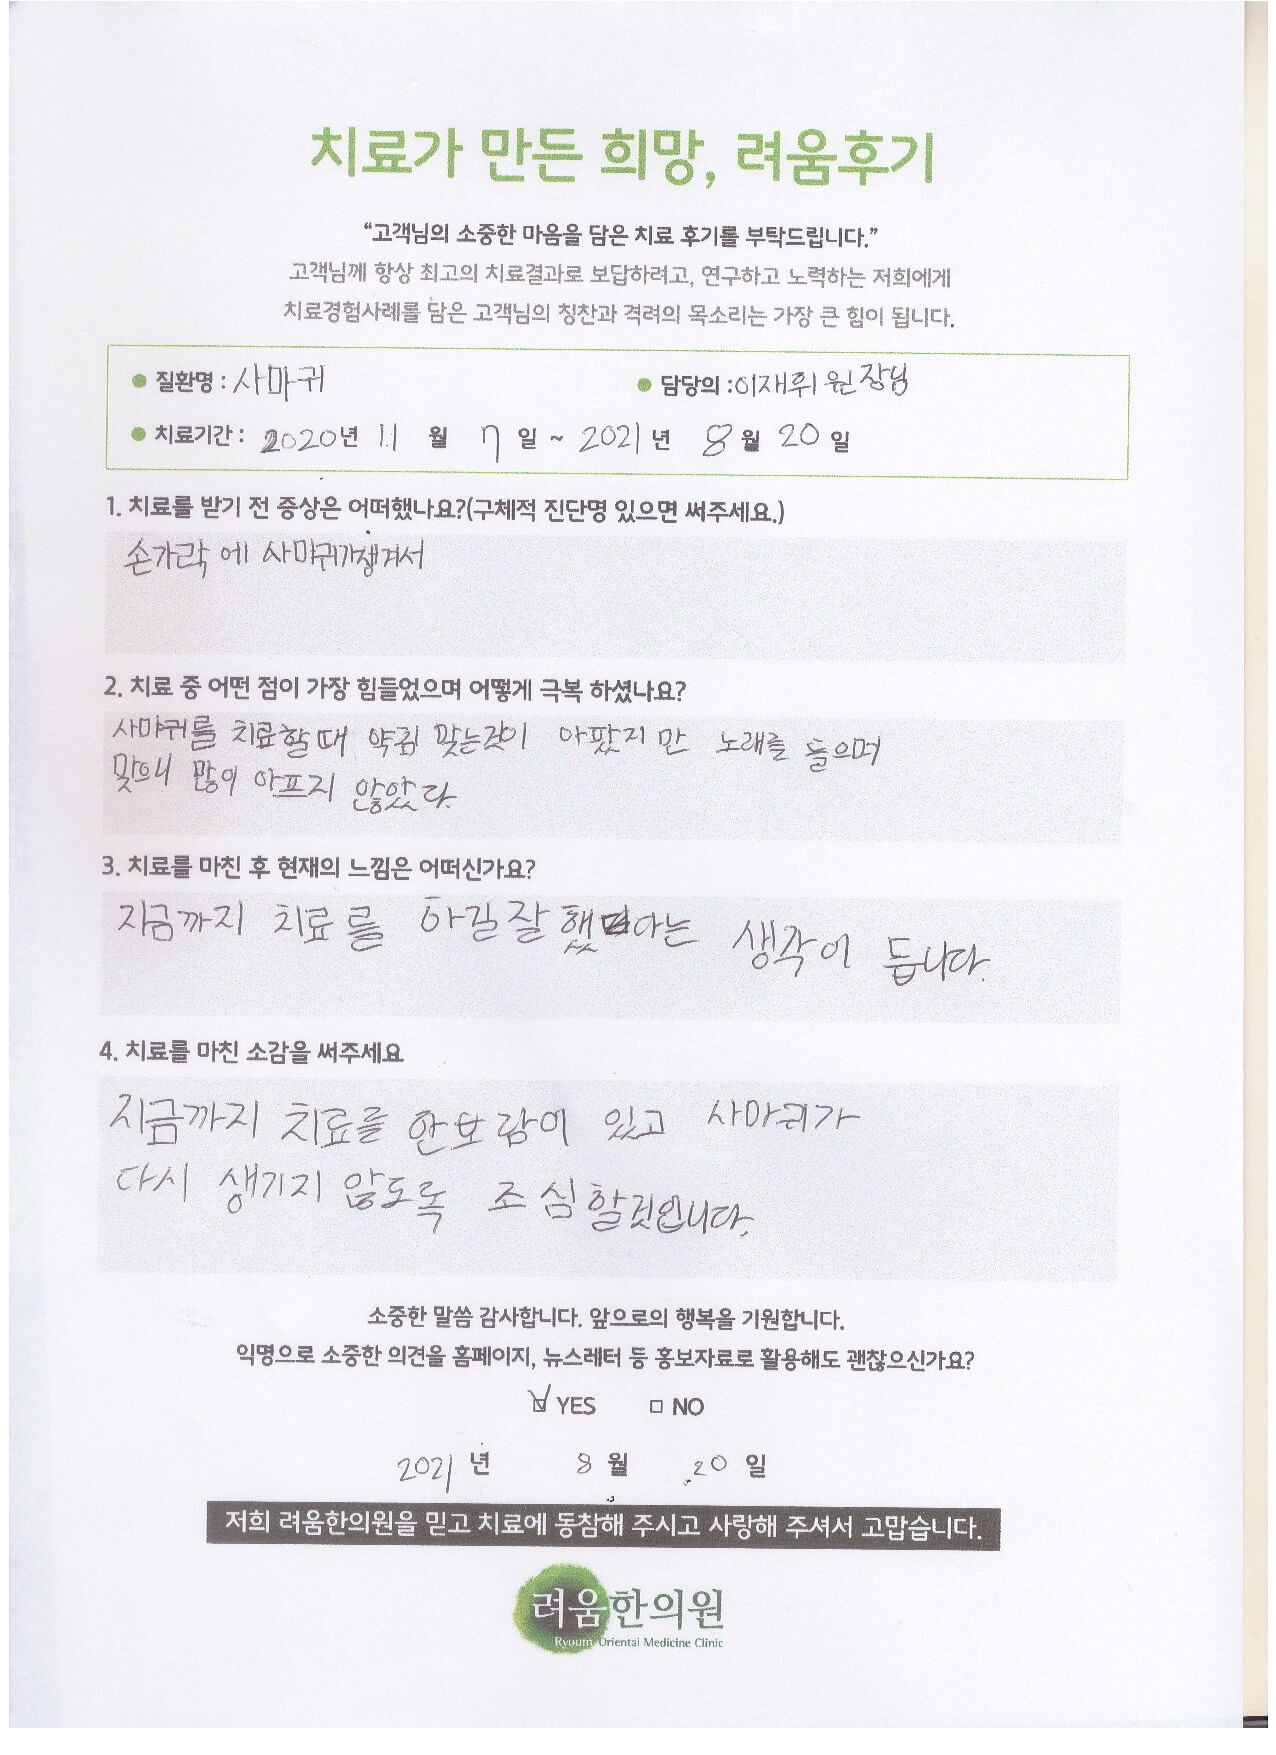 치료가 만든 희망, 려움후기
“고객님의 소중한 마음을 담은 치료 후기를 부탁드립니다.”
고객님께 항상 최고의 치료결과로 보답하려고, 연구하고 노력하는 저희에게
치료경험사례를 담은 고객님의 칭찬과 격려의 목소리는 가장 큰 힘이 됩니다.
● 질환명 : 사마귀 ● 담당의 : 이재휘 원장님
● 치료기간 : 2020년 11 월 7 일 ~ 2021 년 8 월 20 일
1. 치료를 받기 전 증상은 어떠했나요?(구체적 진단명 있으면 써주세요.)
손가락에 사마귀가생겨서
2. 치료 중 어떤 점이 가장 힘들었으며 어떻게 극복 하셨나요?
사마귀를 치료할때 약침 맞는것이 아팠지만 노래를 들으며
맞으니 많이 아프지 않았다.
3. 치료를 마친 후 현재의 느낌은 어떠신가요?
지금까지 치료를 하길잘했다는 생각이 듭니다.
4. 치료를 마친 소감을 써주세요
지금까지 치료를 한보람이 있고 사마귀가
다시 생기지 않도록 조심할것입니다.
소중한 말씀 감사합니다. 앞으로의 행복을 기원합니다.
익명으로 소중한 의견을 홈페이지, 뉴스레터 등 홍보자료로 활용해도 괜찮으신가요?
☑ YES □ NO
2021 년 8 월 20 일
저희 려움한의원을 믿고 치료에 동참해 주시고 사랑해 주셔서 고맙습니다.
려움한의원
Ryoum Oriental Medicine Clinic